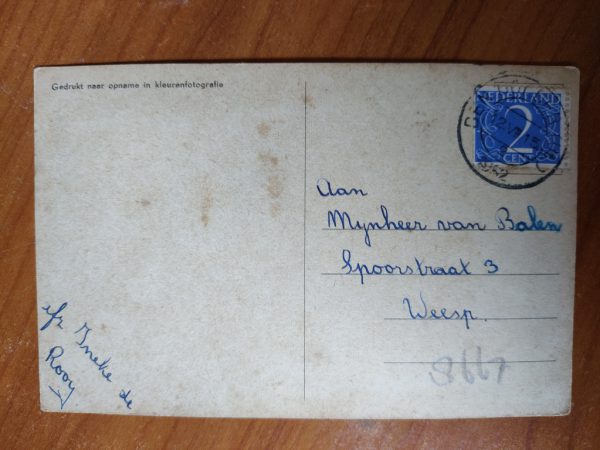 Gedrukt naar opname in kleurenfotografie
NEDERLAND
2
CENT
1952
Aan
Mynheer van Balen
Spoorstraat 3
Weesp.
afz Ineke de
Rooy